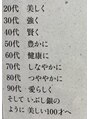 20代　美しく
30代　強く
40代　賢く
50代　豊かに
60代　健康に
70代　しなやかに
80代　つややかに
90代　愛らしく
そして いぶし銀の
ように 美しい100才へ